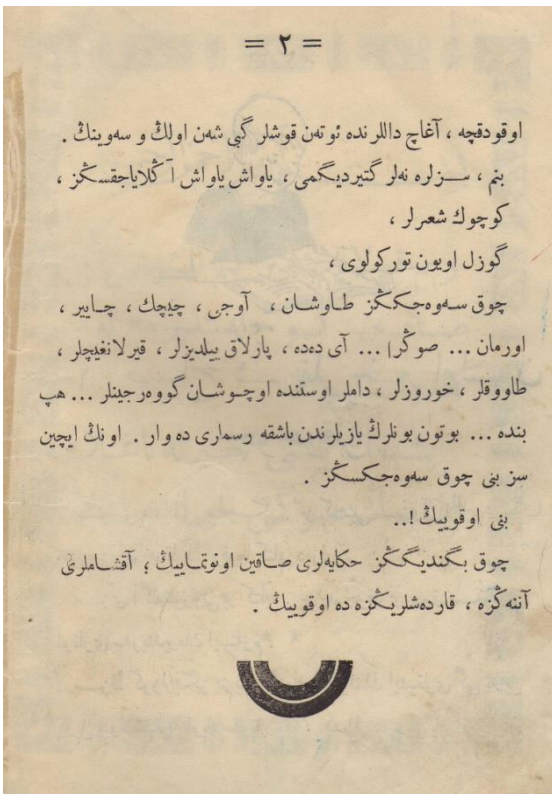 = ٢ =
اوقودقچه ، آغاچ داللرنده ئوتەن قوشلر گبی شەن اولڭ و سەوینڭ .
بنم ، سزلره نەلر گتیردیگمی ، یاواش یاواش آڭلایاجقسڭز ،
كوچوك شعرلر ،
گوزل اویون توركولوی ،
چوق سەوەجكڭز طاوشان ، آوجی ، چیچك ، چایر ،
اورمان ... صوڭرا ... آی دەدە ، پارلاق ییلدیزلر ، قیرلانغیچلر ،
طاووقلر ، خوروزلر ، داملر اوستنده اوچوشان گووەرجینلر ... هپ
بنده ... بوتون بونلرڭ یازیلرندن باشقه رسماری ده وار . اونڭ ایچین
سز بنی چوق سەوەجكسڭز .
بنی اوقوییڭ !..
چوق بگندیگڭز حكایەلری صاقین اونوتماییڭ ؛ آقشاملری
آننەڭزه ، قاردەشلریڭزه ده اوقوییڭ .